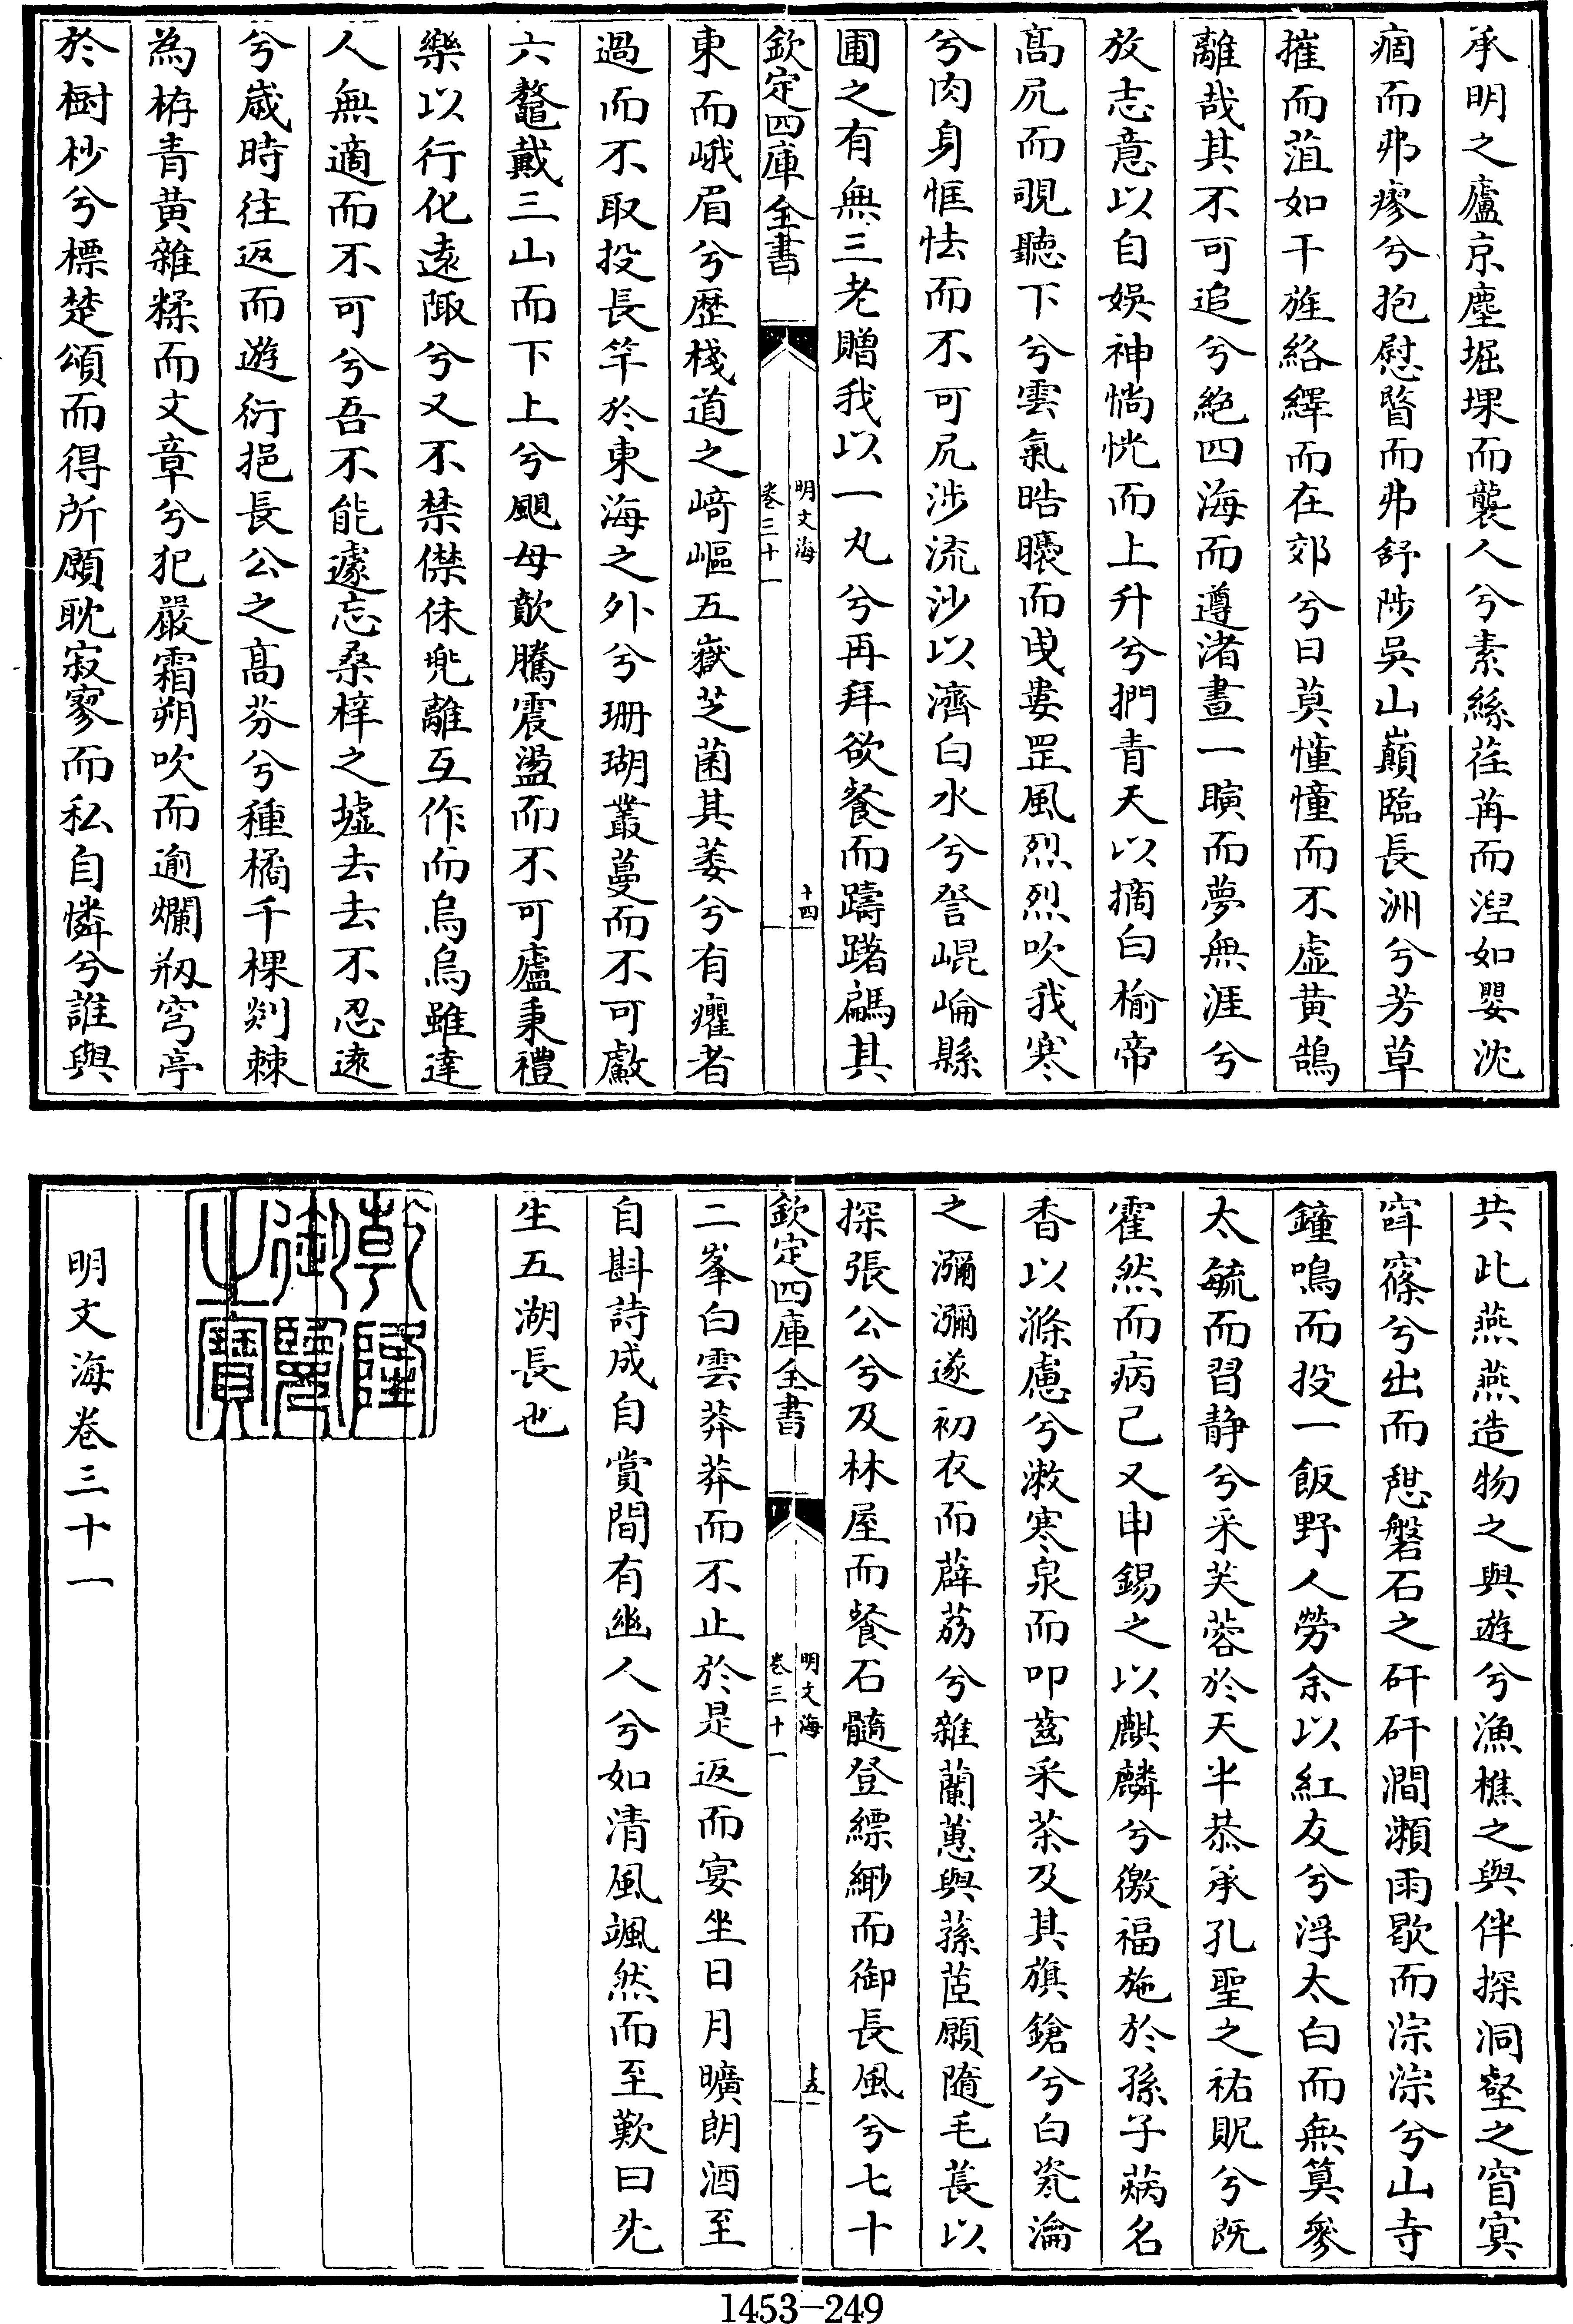 承明之廬京塵堀堁而襲人兮素絲荏苒而湼如嬰沈
痼而弗瘳兮抱慰暋而弗舒陟吳山巔臨長洲兮芳草
摧而菹如干旌絡繹而在郊兮日莫憧憧而不虛黃鵠
離哉其不可追兮絕四海而遵渚晝一瞚而夢無涯兮
放志意以自娛神惝恍而上升兮捫青天以摘白榆帝
高凥而覗聽下兮雲氣晧曭而曵婁罡風烈烈吹我寒
兮肉身恇怯而不可凥涉流沙以濟白水兮詧崐崘縣
圃之有無三老贈我以一丸兮再拜欲餐而躊躇騙其
欽定四庫全書
明文海
卷三十一
十四
東而峨眉兮歷棧道之﨑嶇五嶽芝菌其萎兮有癯者
過而不取投長竿於東海之外兮珊瑚叢蔓而不可䱷
六鼇戴三山而下上兮颶母歕騰震盪而不可廬秉禮
樂以行化遠陬兮又不禁僸佅兜離互作而烏烏雖達
人無適而不可兮吾不能遽忘桑梓之墟去去不忍遠
兮歲時往返而遊衍挹長公之高芬兮種橘千棵剡棘
為栫青黃雜糅而文章兮犯嚴霜朔吹而逾爛剙穹亭
於樹杪兮標楚頌而得所願耽寂寥而私自憐兮誰與
共此燕燕造物之與遊兮漁樵之與伴探洞壑之窅㝠
窜窱兮出而憇磐石之矸矸澗瀨雨歇而淙淙兮山寺
鐘鳴而投一飯野人勞余以紅友兮浮太白而無筭參
太毓而習靜兮采芙蓉於天半恭承孔聖之祐貺兮既
霍然而病己又申錫之以麒麟兮徼福施於孫子爇名
香以滌慮兮漱寒泉而叩齒采茶及其旗鎗兮白瓷瀹
之瀰瀰遂初衣而薜荔兮雜蘭蕙與蓀茝願隨毛萇以
探張公兮及林屋而餐石髓登縹緲而御長風兮七十
欽定四庫全書
明文海
卷三十一
十五
二峯白雲莽莽而不止於是返而宴坐日月曠朗酒至
自斟詩成自賞間有幽人兮如清風颯然而至歎曰先
生五湖長也
乾隆御覽之寶
明文海卷三十一
1453—249